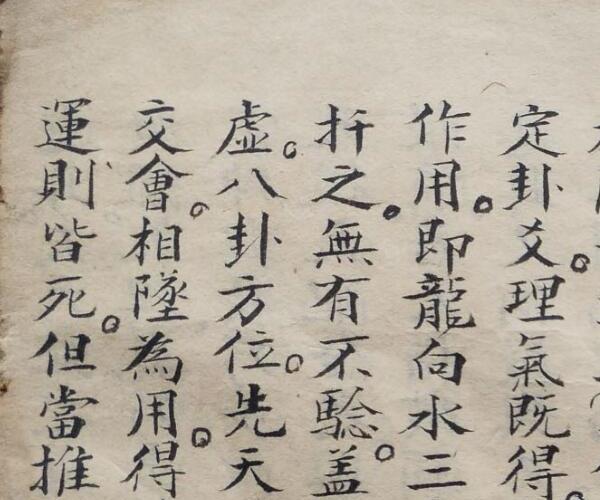 定卦爻。理氣既得。
作用。即龍向水三
扦之。無有不驗。盖
虚。八卦方位。先天
交會。相墜為用。得
運則皆死。但當推